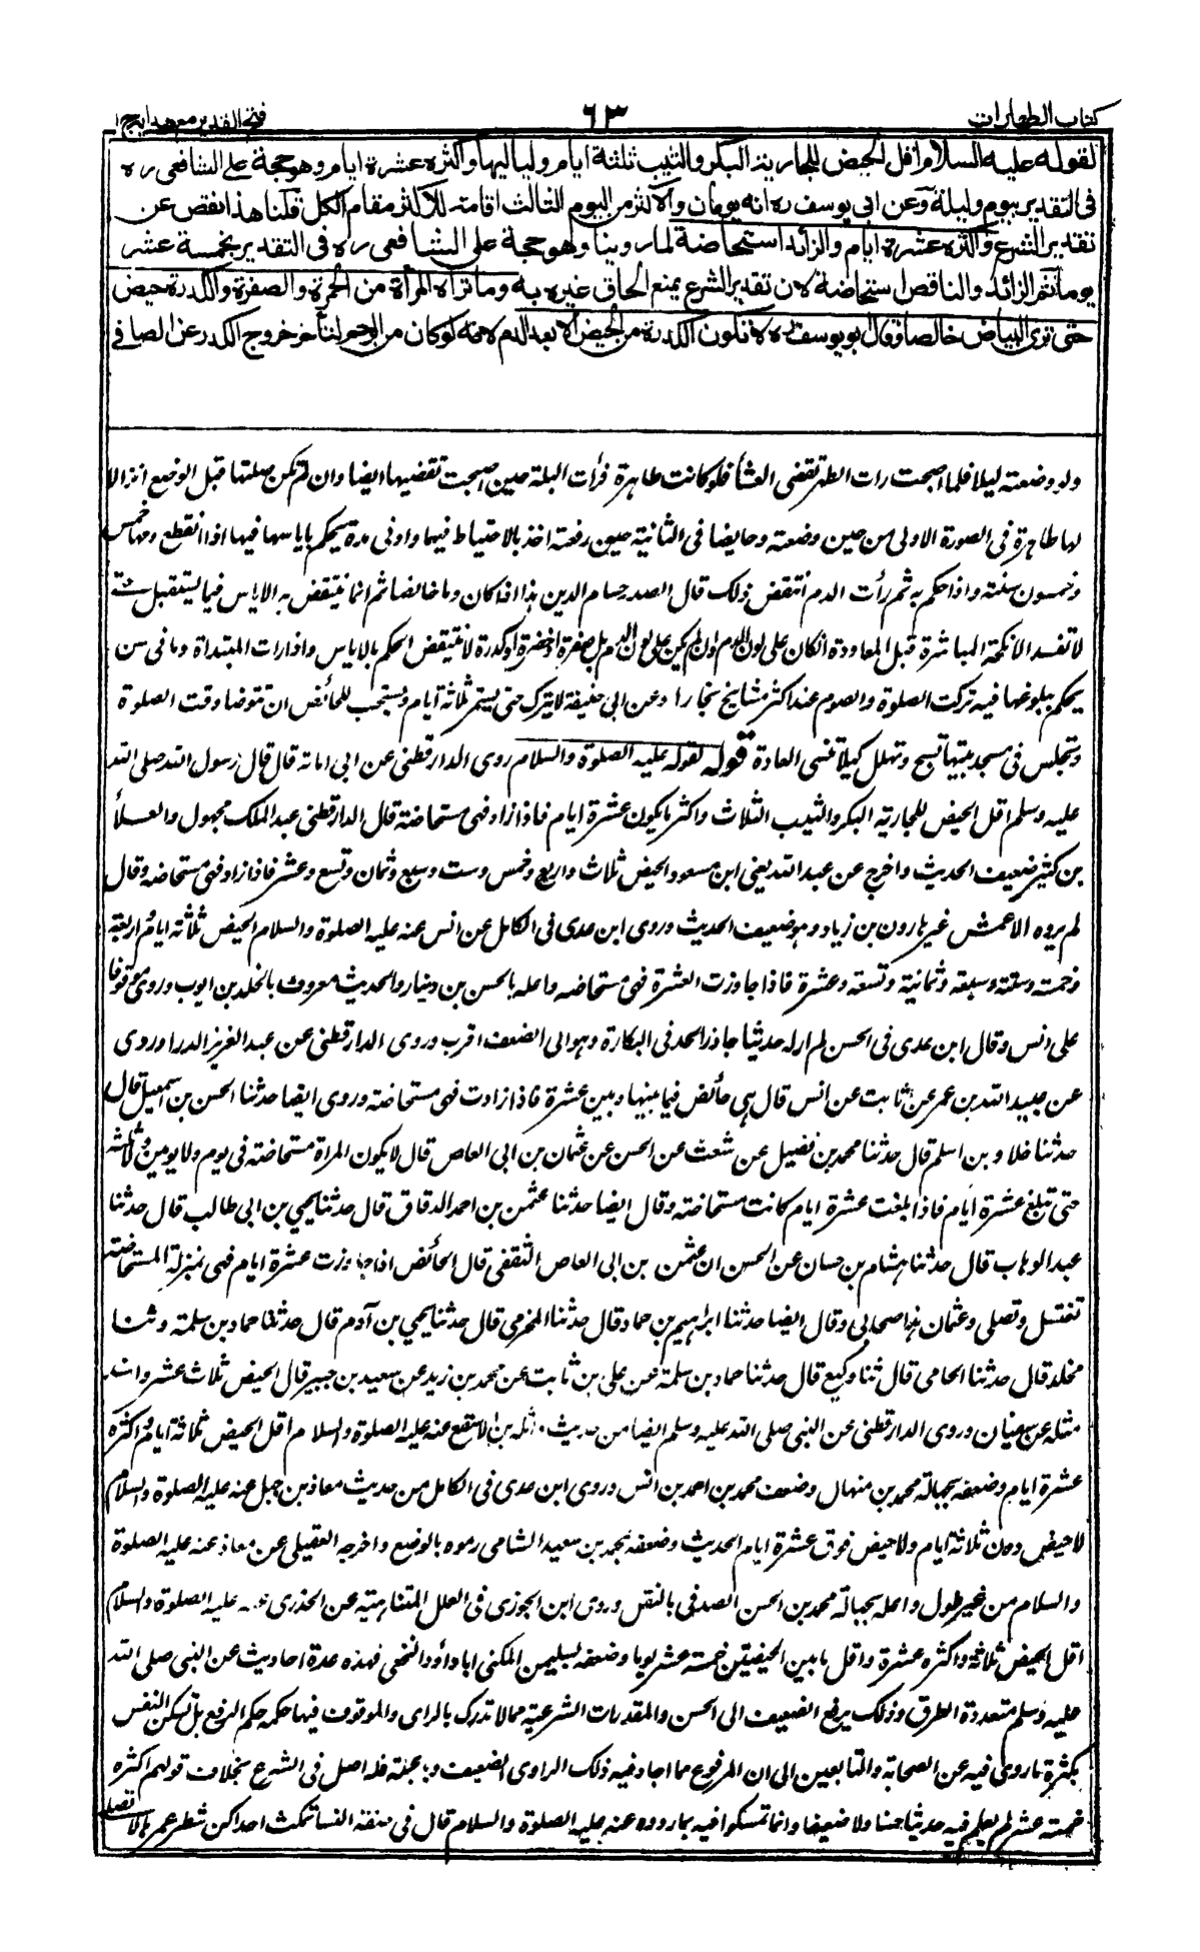 كتاب الطهارات
٦٣
فتح القدير مع هدايه ج ١
لقوله عليه السلام اقل الحيض للجارية البكر والثيب ثلثة ايام ولياليها واكثره عشرة ايام وهو حجة على الشافعى ره
فى التقدير بيوم وليلة وعن ابى يوسف ره انه يومان والاكثر من اليوم الثالث اقامة للاكثر مقام الكل قلنا هذا نقص عن
تقدير الشرع واكثره عشرة ايام والزائد استحاضة لما روينا وهو حجة على الشافعى ره فى التقدير بخمسة عشر
يوما ثم الزائد والناقص استحاضة لان تقدير الشرع يمنع الحاق غيره به وما تراه المرأة من الحمرة والصفرة والكدرة حيض
حتى ترى البياض خالصا وقال ابو يوسف ره لا تكون الكدرة من الحيض الا بعد الدم لانه لو كان من الرحم لتأخر خروج الكدر عن الصافى
ولو وضعته ليلا فلما اصبحت رات الطهر تقضى العشأ فلو كانت طاهرة فرأت البلة حين اصبحت تقضيها ايضا وان لم تكن صلتها قبل الوضع انزالا
لها طاهرة فى الصورة الاولى من حين وضعته وحايضا فى الثانية حين رفعته اخذ بالاحتياط فيهما وادنى مدة يحكم باياسها فيها اذا انقطع دمها خمس
وخمسون سنته واذا حكم به ثم رأت الدم انتقض ذلك قال الصدر حسام الدين هذا اذا كان دما خالصا ثم انما ينتقض به الاياس فيما يستقبل حتى
لا تفسد الانكحة المباشرة قبل المعاودة انكان على لون الدم وان لم يكن على لون الدم بل صفرة او خضرة او كدرة لا ينتقض الحكم بالاياس واذا رات المبتداة دما فى سن
يحكم ببلوغها فيه تركت الصلوة والصوم عند اكثر مشايخ بخارا وعن ابى حنيفة لا تترك حتى يستمر ثلاثة ايام ويستحب للحائض ان تتوضا وقت الصلوة
وتجلس فى مسجد بيتها تسبح وتهلل كيلا تنسى العادة قوله لقوله عليه الصلوة والسلام روى الدارقطنى عن ابى امامة قال قال رسول الله صلى الله
عليه وسلم اقل الحيض للجارية البكر والثيب الثلاث واكثر ما يكون عشرة ايام فاذا زاد فهى مستحاضة قال الدارقطنى عبد الملك مجهول والعلأ
بن كثير ضعيف الحديث واخرج عن عبد الله يعنى ابن مسعود الحيض ثلاث واربع وخمس وست وسبع وثمان وتسع وعشر فاذا زاد فهى مستحاضه وقال
لم يروه الاعمش غير هارون بن زياد وهو ضعيف الحديث وروى ابن عدى فى الكامل عن انس عنه عليه الصلوة والسلام الحيض ثلاثة ايام واربعة
وخمسة وستة وسبعه وثمانية وتسعة وعشرة فاذا جاوزت العشرة فهى مستحاضه واعله بالحسن بن دينار والحديث معروف بالخلد بن ايوب وروى موقوفا
على انس وقال ابن عدى فى الحسن لم ار له حديثا جاوز الحد فى النكارة وهو الى الضعف اقرب وروى الدارقطنى عن عبد العزيز الدراوردى
عن عبيد الله بن عمر عن ثابت عن انس قال هى حائض فيما بينها وبين عشرة فاذا زادت فهى مستحاضة وروى ايضا حدثنا الحسن بن اسمعيل قال
حدثنا خلاد بن اسلم قال حدثنا محمد بن فضيل عن شعث عن الحسن عن عثمان بن ابى العاص قال لا يكون المراة مستحاضة فى يوم ولا يومين وثلاثة
حتى تبلغ عشرة ايام فاذا بلغت عشرة ايام كانت مستحاضة وقال ايضا حدثنا عثمن بن احمد الدقاق قال حدثنا يحيى بن ابى طالب قال حدثنا
عبد الوهاب قال حدثنا هشام بن حسان عن الحسن ان عثمن بن ابى العاص الثقفى قال الحائض اذا جاوزت عشرة ايام فهى بمنزلة المستحاضة
تغتسل وتصلى وعثمان هذا صحابى وقال ايضا حدثنا ابراهيم بن حماد قال حدثنا المخرمى قال حدثنا يحيى بن آدم قال حدثنا حماد بن سلمة وثنا
مخلد قال حدثنا الحامى قال ثنا وكيع قال حدثنا حماد بن سلمة عن على بن ثابت عن محمد بن زيد عن سعيد بن جبير قال الحيض ثلاث عشر واسند
مثله عن سفيان وروى الدارقطنى عن النبى صلى الله عليه وسلم ايضا من حديث واثلة بن الاسقع عنه عليه الصلوة والسلام اقل الحيض ثلاثة ايام واكثره
عشرة ايام وضعفه بجهالة محمد بن منهال وضعف محمد بن احمد بن انس وروى ابن عدى فى الكامل من حديث معاذ بن جبل عنه عليه الصلوة والسلام
لا حيض دون ثلاثة ايام ولا حيض فوق عشرة ايام الحديث وضعفه بمحمد بن سعيد الشامى رموه بالوضع واخرجه العقيلى عن معاذ عنه عليه الصلوة
والسلام من غير طول واعله بجهالة محمد بن الحسن الصدفى بالنقل وروى ابن الجوزى فى العلل المتناهية عن الخدرى عنه عليه الصلوة والسلام
اقل الحيض ثلاثة واكثره عشرة واقل ما بين الحيضتين خمسة عشر يوما وضعفه بسليمن المكنى ابا داؤد النخعى فهذه عدة احاديث عن النبى صلى الله
عليه وسلم متعددة الطرق وذلك يرفع الضعيف الى الحسن والمقدرات الشرعية مما لا تدرك بالراى والموقوف فيها حكمه حكم الرفع بل تسكن النفس
بكثرة ما روى فيه عن الصحابة والتابعين الى ان المرفوع مما اجاد فيه ذلك الراوى الضعيف وبالجملة فله اصل فى الشرع بخلاف قولهم اكثره
خمسة عشر لم يعلم فيه حديثا حسنا ولا ضعيفا وانما تمسكوا فيه بما رووه عنه عليه الصلوة والسلام قال فى صفة النسا تمكث احداكن شطر عمرها لا تصلى